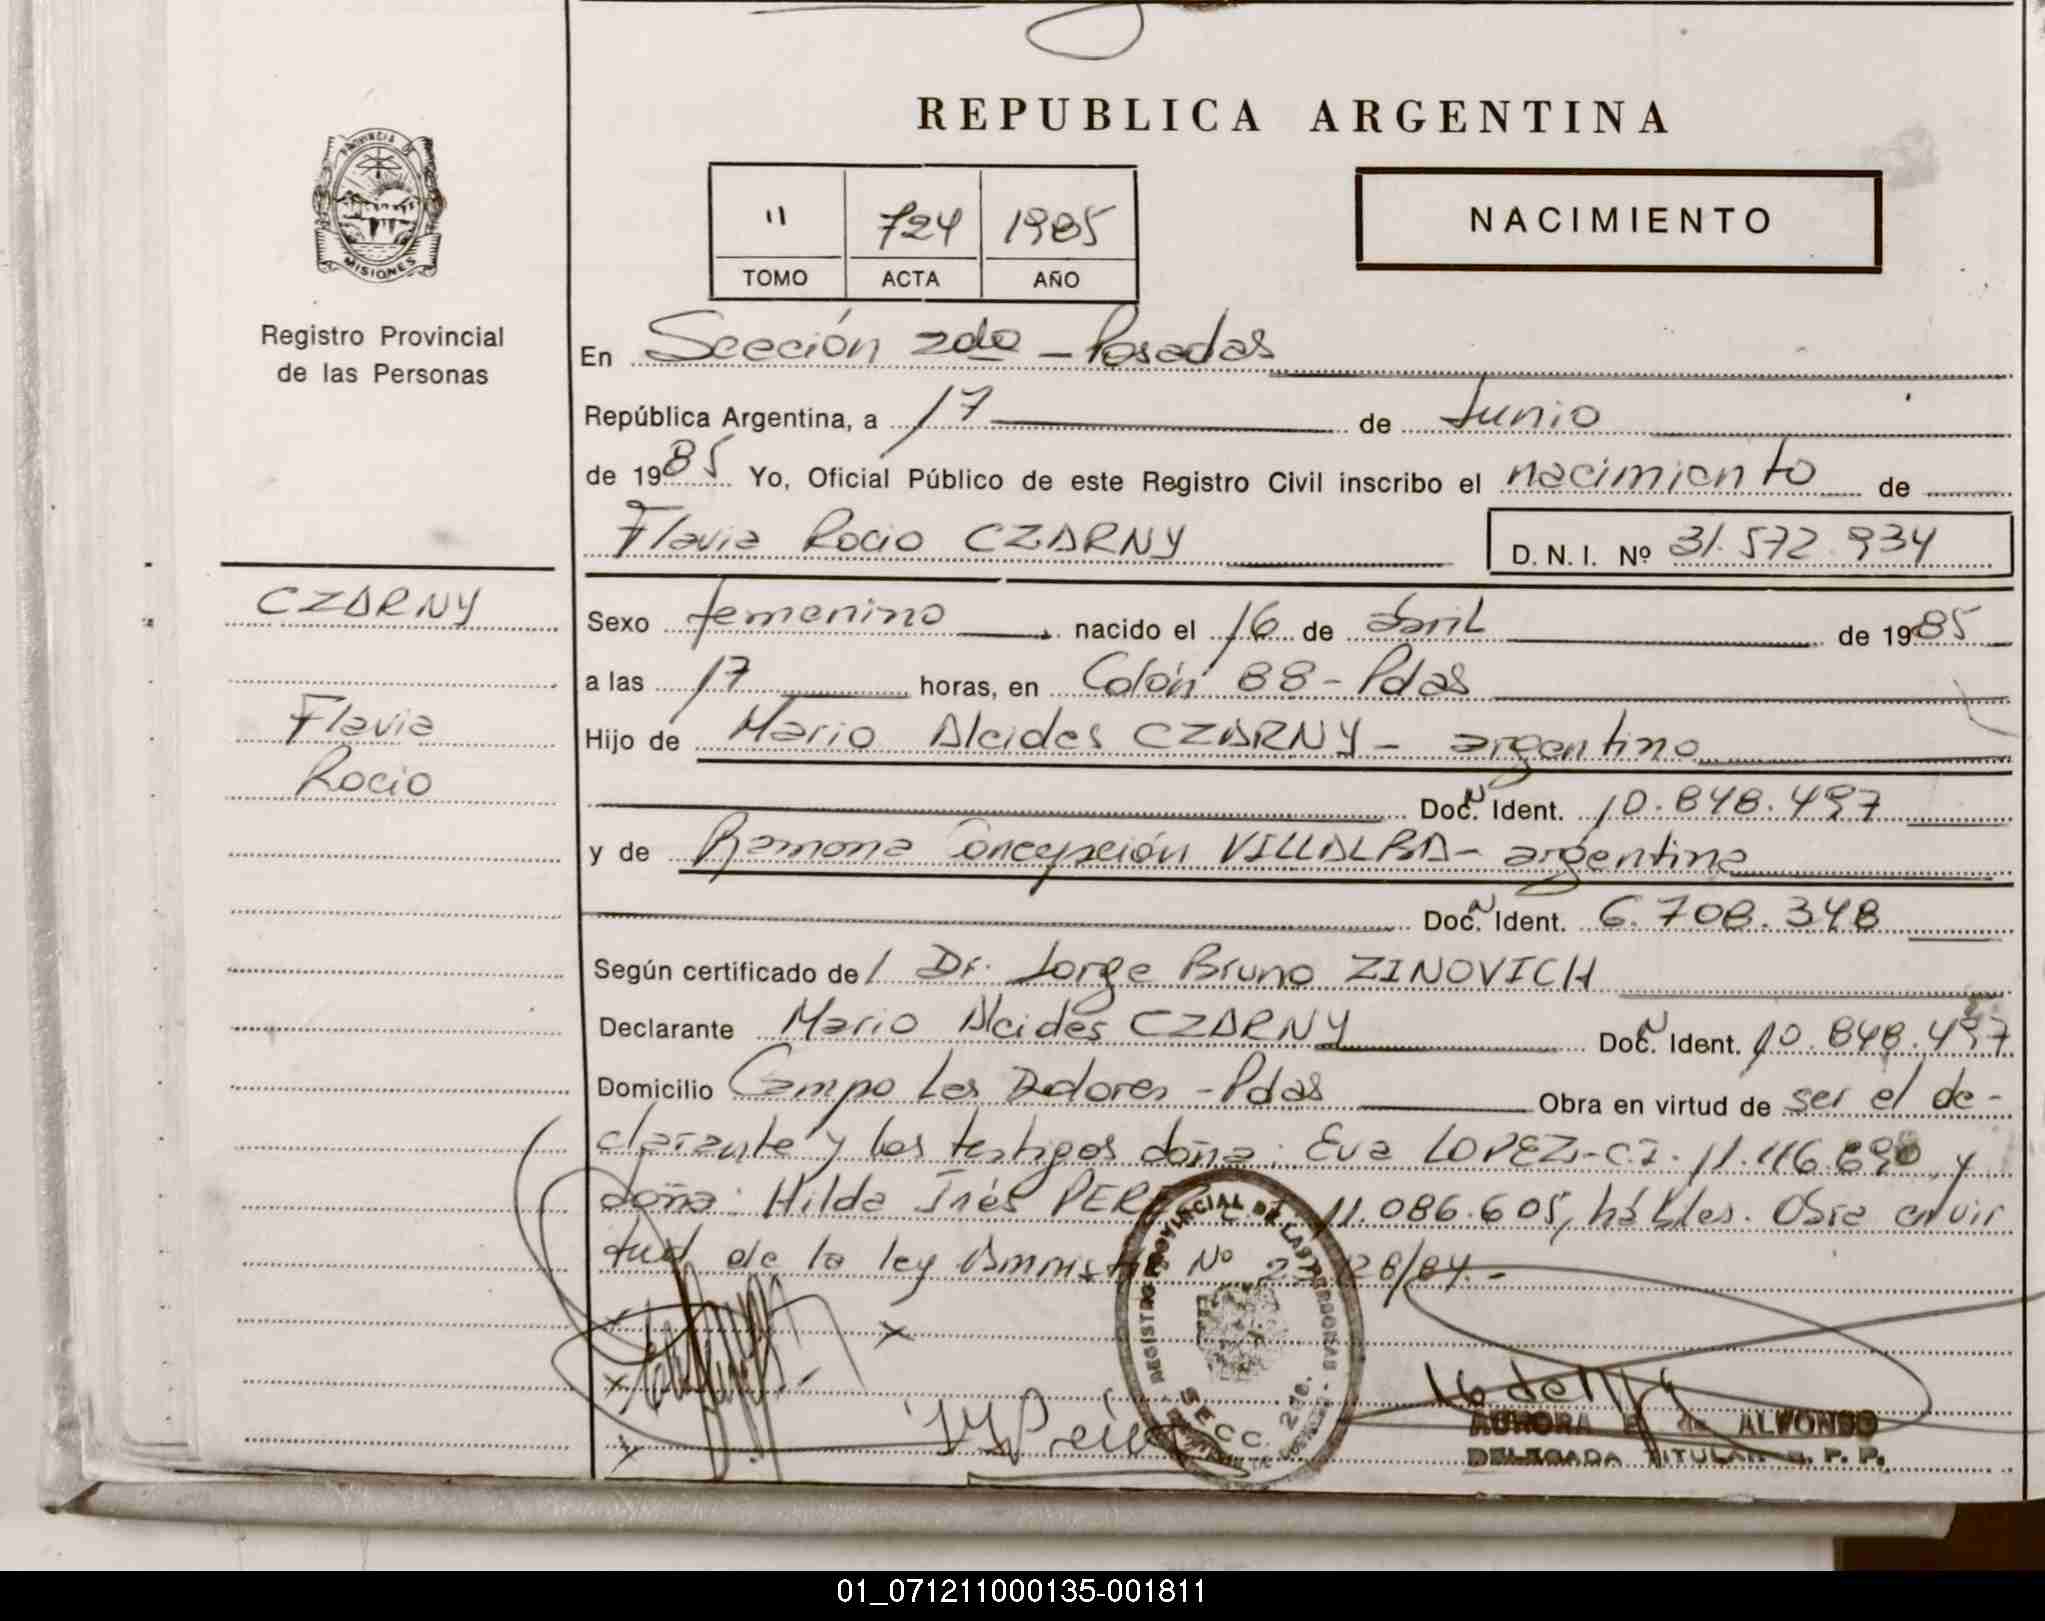 REPUBLICA ARGENTINA
PROVINCIA DE
MISIONES
Registro Provincial
de las Personas
" 724 1985
TOMO ACTA AÑO
NACIMIENTO
En Sección 2da - Posadas
República Argentina, a 17 de Junio
de 1985 Yo, Oficial Público de este Registro Civil inscribo el nacimiento de
Flavia Rocio CZARNY D. N. I. Nº 31.572.934
CZARNY
Flavia
Rocio
Sexo femenino nacido el 16 de abril de 1985
a las 17 horas, en Colón 88 - Pdas
Hijo de Mario Alcides CZARNY - argentino
Doc. Ident. 10.848.497
y de Ramona Concepción VILLALBA - argentina
Doc. Ident. 6.708.348
Según certificado del Dr. Jorge Bruno ZINOVICH
Declarante Mario Alcides CZARNY Doc. Ident. 10.848.497
Domicilio Campo Las Dolores - Pdas Obra en virtud de ser el de-
clarante y los testigos doña: Eva LOPEZ - C.I. y
doña: Hilda Inés 11.086.605, hábles. Obra en vir
tud de la ley Nº /84.-
x
x
x
x
REGISTRO PROVINCIAL DE LAS PERSONAS
SECC. 2da.
AURORA E. de ALFONSO
DELEGADA TITULAR R. P. P.
01_071211000135-001811